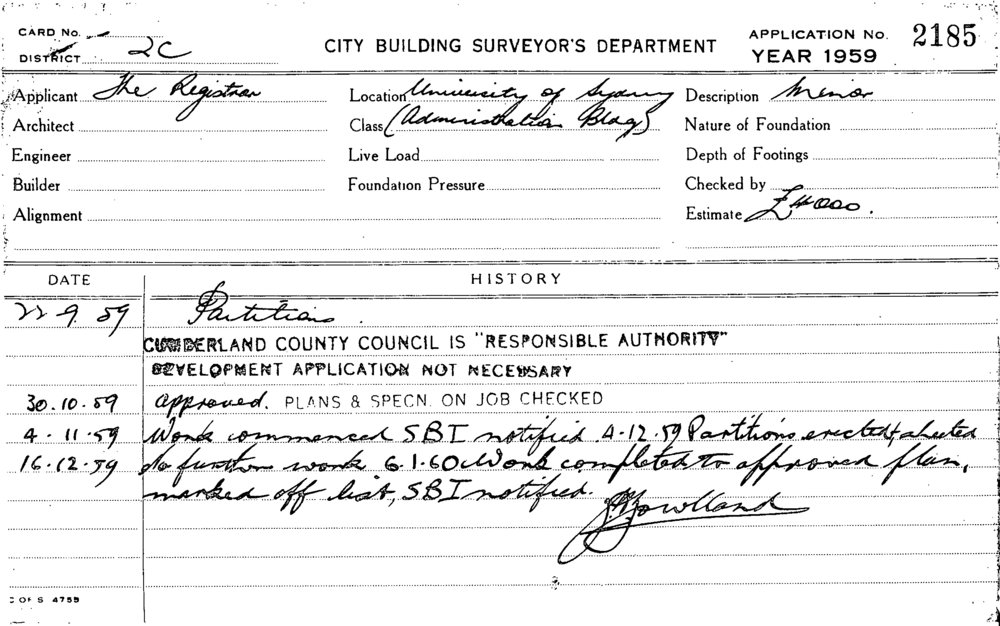 CARD No.
DISTRICT 2C
CITY BUILDING SURVEYOR'S DEPARTMENT
APPLICATION No. 2185
YEAR 1959
Applicant The Registrar
Location University of Sydney
Description Minor
Architect
Class (Administration Bldg)
Nature of Foundation
Engineer
Live Load
Depth of Footings
Builder
Foundation Pressure
Checked by
Alignment
Estimate £4000.
DATE
HISTORY
22 9. 59 Partitions.
CUMBERLAND COUNTY COUNCIL IS "RESPONSIBLE AUTHORITY"
DEVELOPMENT APPLICATION NOT NECESSARY
30.10.59 Approved. PLANS & SPECN. ON JOB CHECKED
4.11.59 Work commenced SBI notified 4-12.59 Partitions erected & sheeted
16.12.59 no further work 6.1.60 Work completed to approved plan,
marked off list, SBI notified.
C OF S 4755